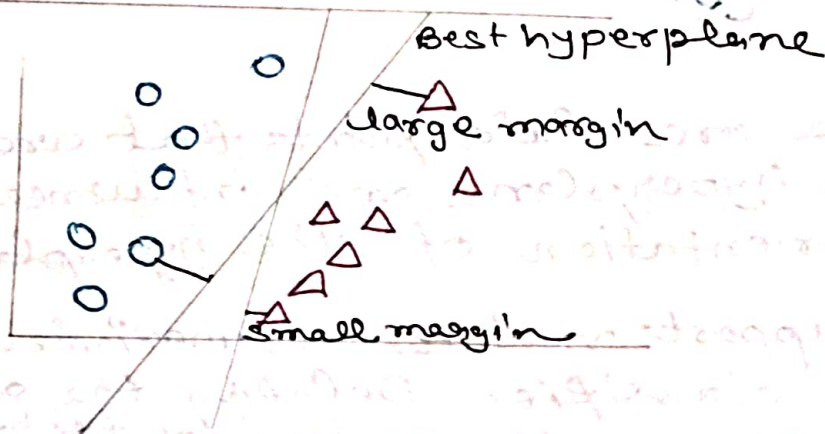 Best hyperplane
large margin
Small margin